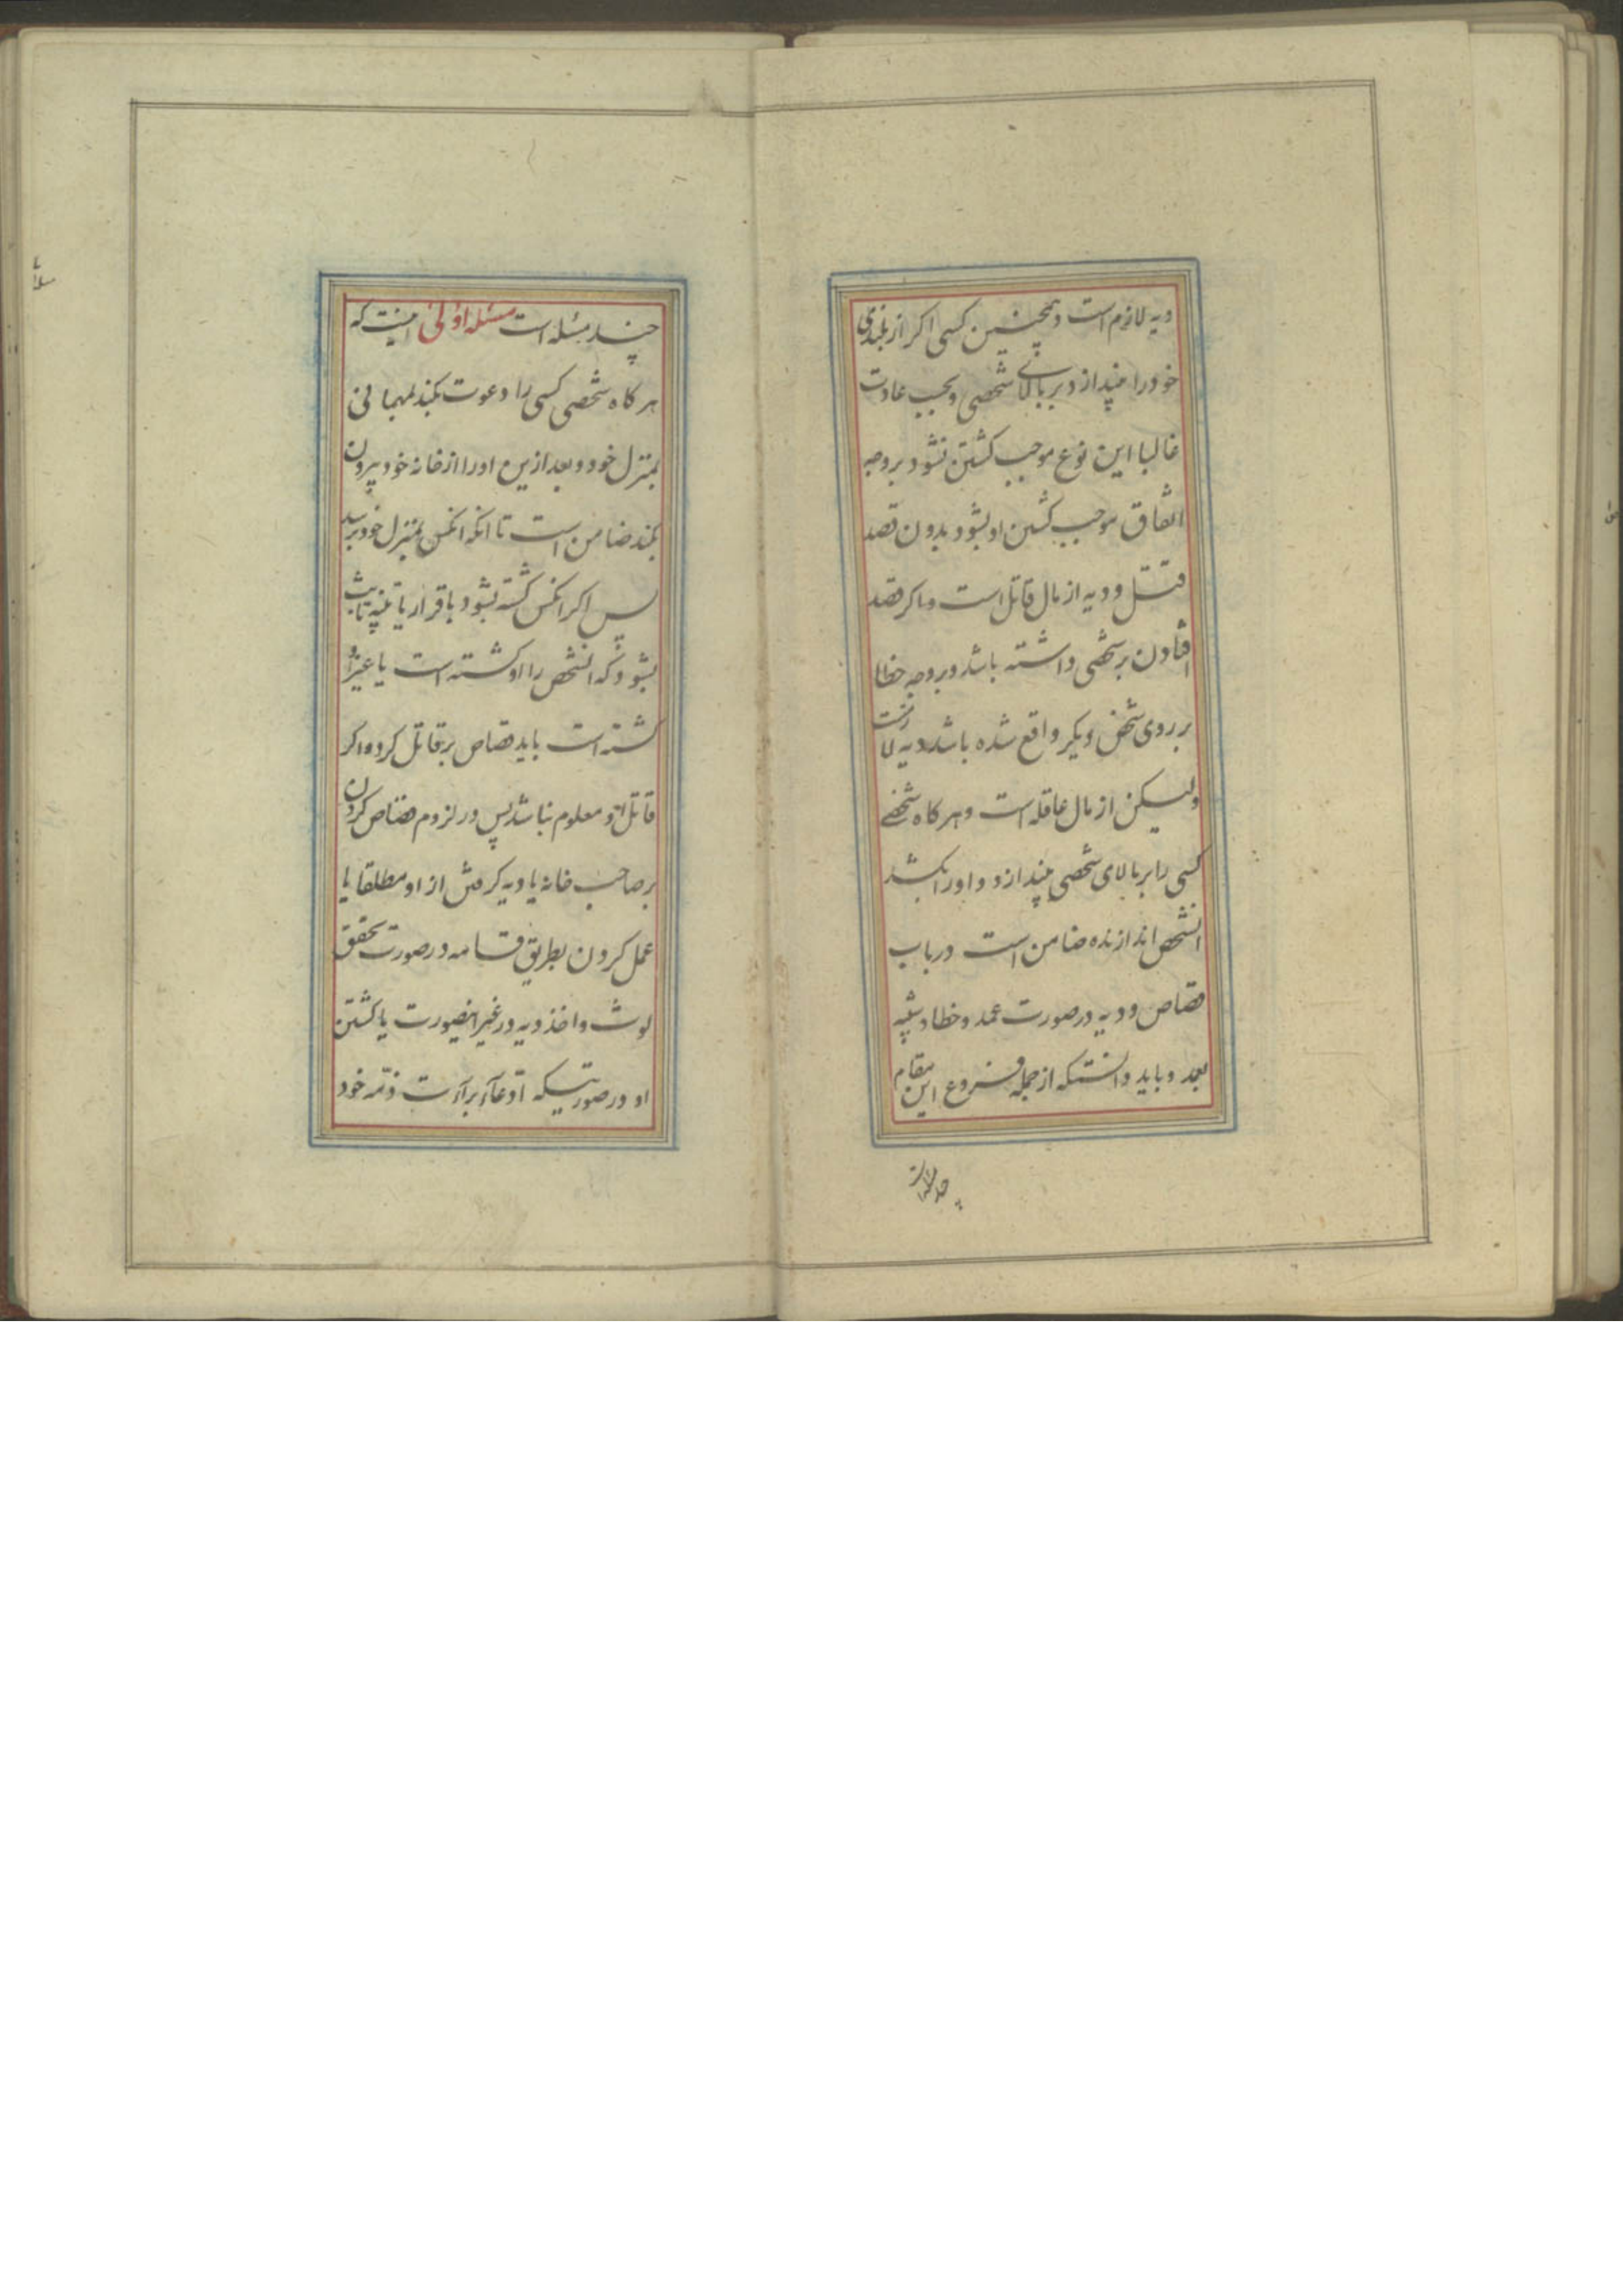 دیه لازم است و همچنین کسی اکر از بلندی
خود را بیندازد بر بالای شخصی و بحسب عادت
غالبا این نوع موجب کشتن نشود بر وجه
اتفاق موجب کشتن او بشود بدون قصد
قتل و دیه از مال قاتل است و اکر قصد
افتادن بر شخصی داشته باشد و بر وجه خطا
بر روی شخص دیکر واقع شده باشد دیه لازمست
ولیکن از مال عاقله است و هر کاه شخصی
کسی را بر بالای شخصی بیندازد و او را بکشد
انشخص اندازنده ضامن است در باب
قصاص و دیه در صورت عمد و خطا و شبیه
بعمد و باید دانستکه از جمله فروع این مقام
چند مسئله است
چند مسئله است مسئله اولی اینست که
هر کاه شخصی کسی را دعوت بکند بمهمانی
بمنزل خود و بعد ازین او را از خانه خود بیرون
بکند ضامن است تا انکه انکس بمنزل خود برسد
پس اکر انکس کشته بشود باقرار یا بینه ثابت
بشود که انشخص را او کشته است یا غیر او
کشته است باید قصاص بر قاتل کرد و اکر
قاتل او معلوم نباشد پس در لزوم قصاص کردن
بر صاحب خانه یا دیه کرفتن از او مطلقا یا
عمل کردن بطریق قسامه در صورت تحقق
لوث و اخذ دیه در غیر اینصورت یا کشتن
او در صورتیکه ادعآء برآءت ذمه خود